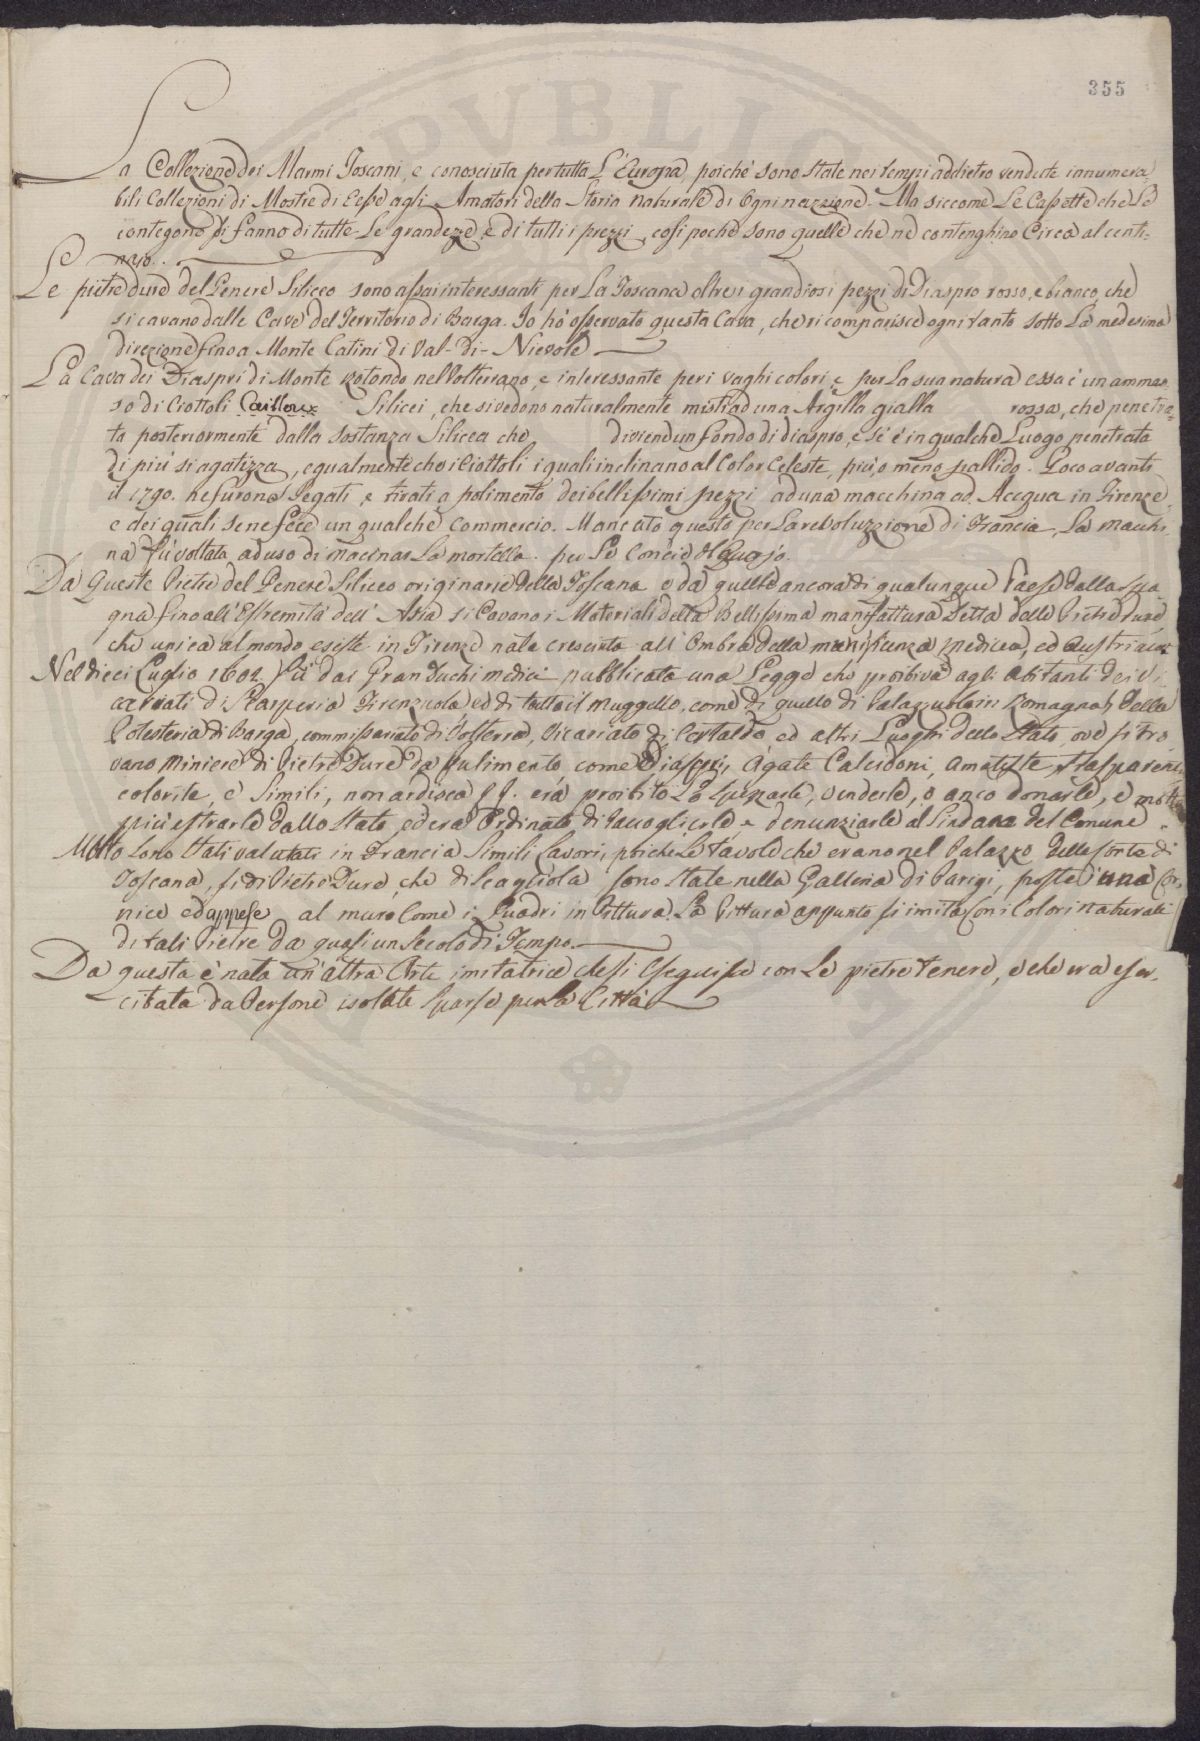 355
La Collezione dei Marmi Toscani, e conosciuta per tutta L'Europa, poiche sono state nei tempi addietro vendute innumera
bili Collezioni di Mostre di Esse agli Amatori della Storia naturale di Ogni nazzione. Ma siccome Le Cassette che Le
contegono si fanno di tutte Le grandezze, e di tutti i prezzi, cosi poche sono quelle che ne contenghino Circa al centi-
najo.
Le pietre dure del Genere Siliceo sono assai interessanti per La Toscana oltre i grandiosi pezzi di Diaspro rosso, e bianco, che
si cavano dalle Cave del Territorio di Barga. Io hò osservato questa Cava, che ricomparisce ogni tanto sotto La medesima
direzione fino a Monte Catini di Val-di-Nievole
La Cava dei Diaspri di Monte Rotondo nel Volterrano, e interessante per i vaghi colori, e per La sua natura essa è un ammas
so di Ciottoli Cailloux Silicei, che si vedono naturalmente misti ad una Argilla gialla rossa, che penetra-
ta posteriormente dalla sostanza Silicea che diviend un fondo di diaspro, e si è in qualche Luogo penetrata
di più si agatizza, egualmente che i Ciottoli i quali inclinano al Color Celeste, più, o meno pallido. Poco avanti
il 1790. ne furono Segati, e tirati a polimento dei bellissimi pezzi ad una macchina ad Acqua in Firenze,
e dei quali se ne fece un qualche Commercio. Mancato questo per La revoluzzione di Francia, La macchi-
na fù voltata ad uso di macinar La mortella per Le Concie di Quojo.
Da Queste Pietre del Genere Siliceo originarie della Toscana e da quelle ancora di qualunque Paese dalla Spa
gna fino all'Estremità dell' Asia si Cavano i Materiali della Bellissima manifattura Detta delle Pietre dure
che unica al mondo esiste in Firenze nata cresciuta all' Ombra della munificenza medicea, ed Austriaca
Nel dieci Luglio 1602. fù dai Gran Duchi medici pubblicata una Legge che proibiva agli abitanti dei Vi
cariati di Scarperia Firenzuola ed di tutto il Muggello, come di quello di Palazzuolo in Romagna, della
Potesteria di Barga, commissariato di Volterra, Vicariato di Certaldo ed altri Luoghi dello Stato, ove si tro
vano Miniere di Pietre Dure da pulimento, come Diaspri, Agate Calcidoni, Amatiste, trasparenti
colorite, e Simili, non ardisca era proibito Lo spezzarle, venderle, o anco donarle, e molto
più estrarle dallo Stato, ed era Ordinato di raccoglierle, e denunziarle al Sindaco del Comune.
Molto Sono Stati valutati in Francia Simili Lavori, poiche Le tavole che erano nel Palazzo della Corte di
Toscana, si di Pietre Dure, che di Scagliola sono state nella Galleria di Parigi, poste una Cor-
nice ed appese al muro Come i Quadri in Pittura. La Pittura appunto si imita con i Colori naturali
di tali Pietre da quasi un Secolo di Tempo.
Da questa è nata un'altra Arte imitatrice che si eseguisce con Le pietre tenere, e che era eser-
citata da Persone isolate sparse per La Città